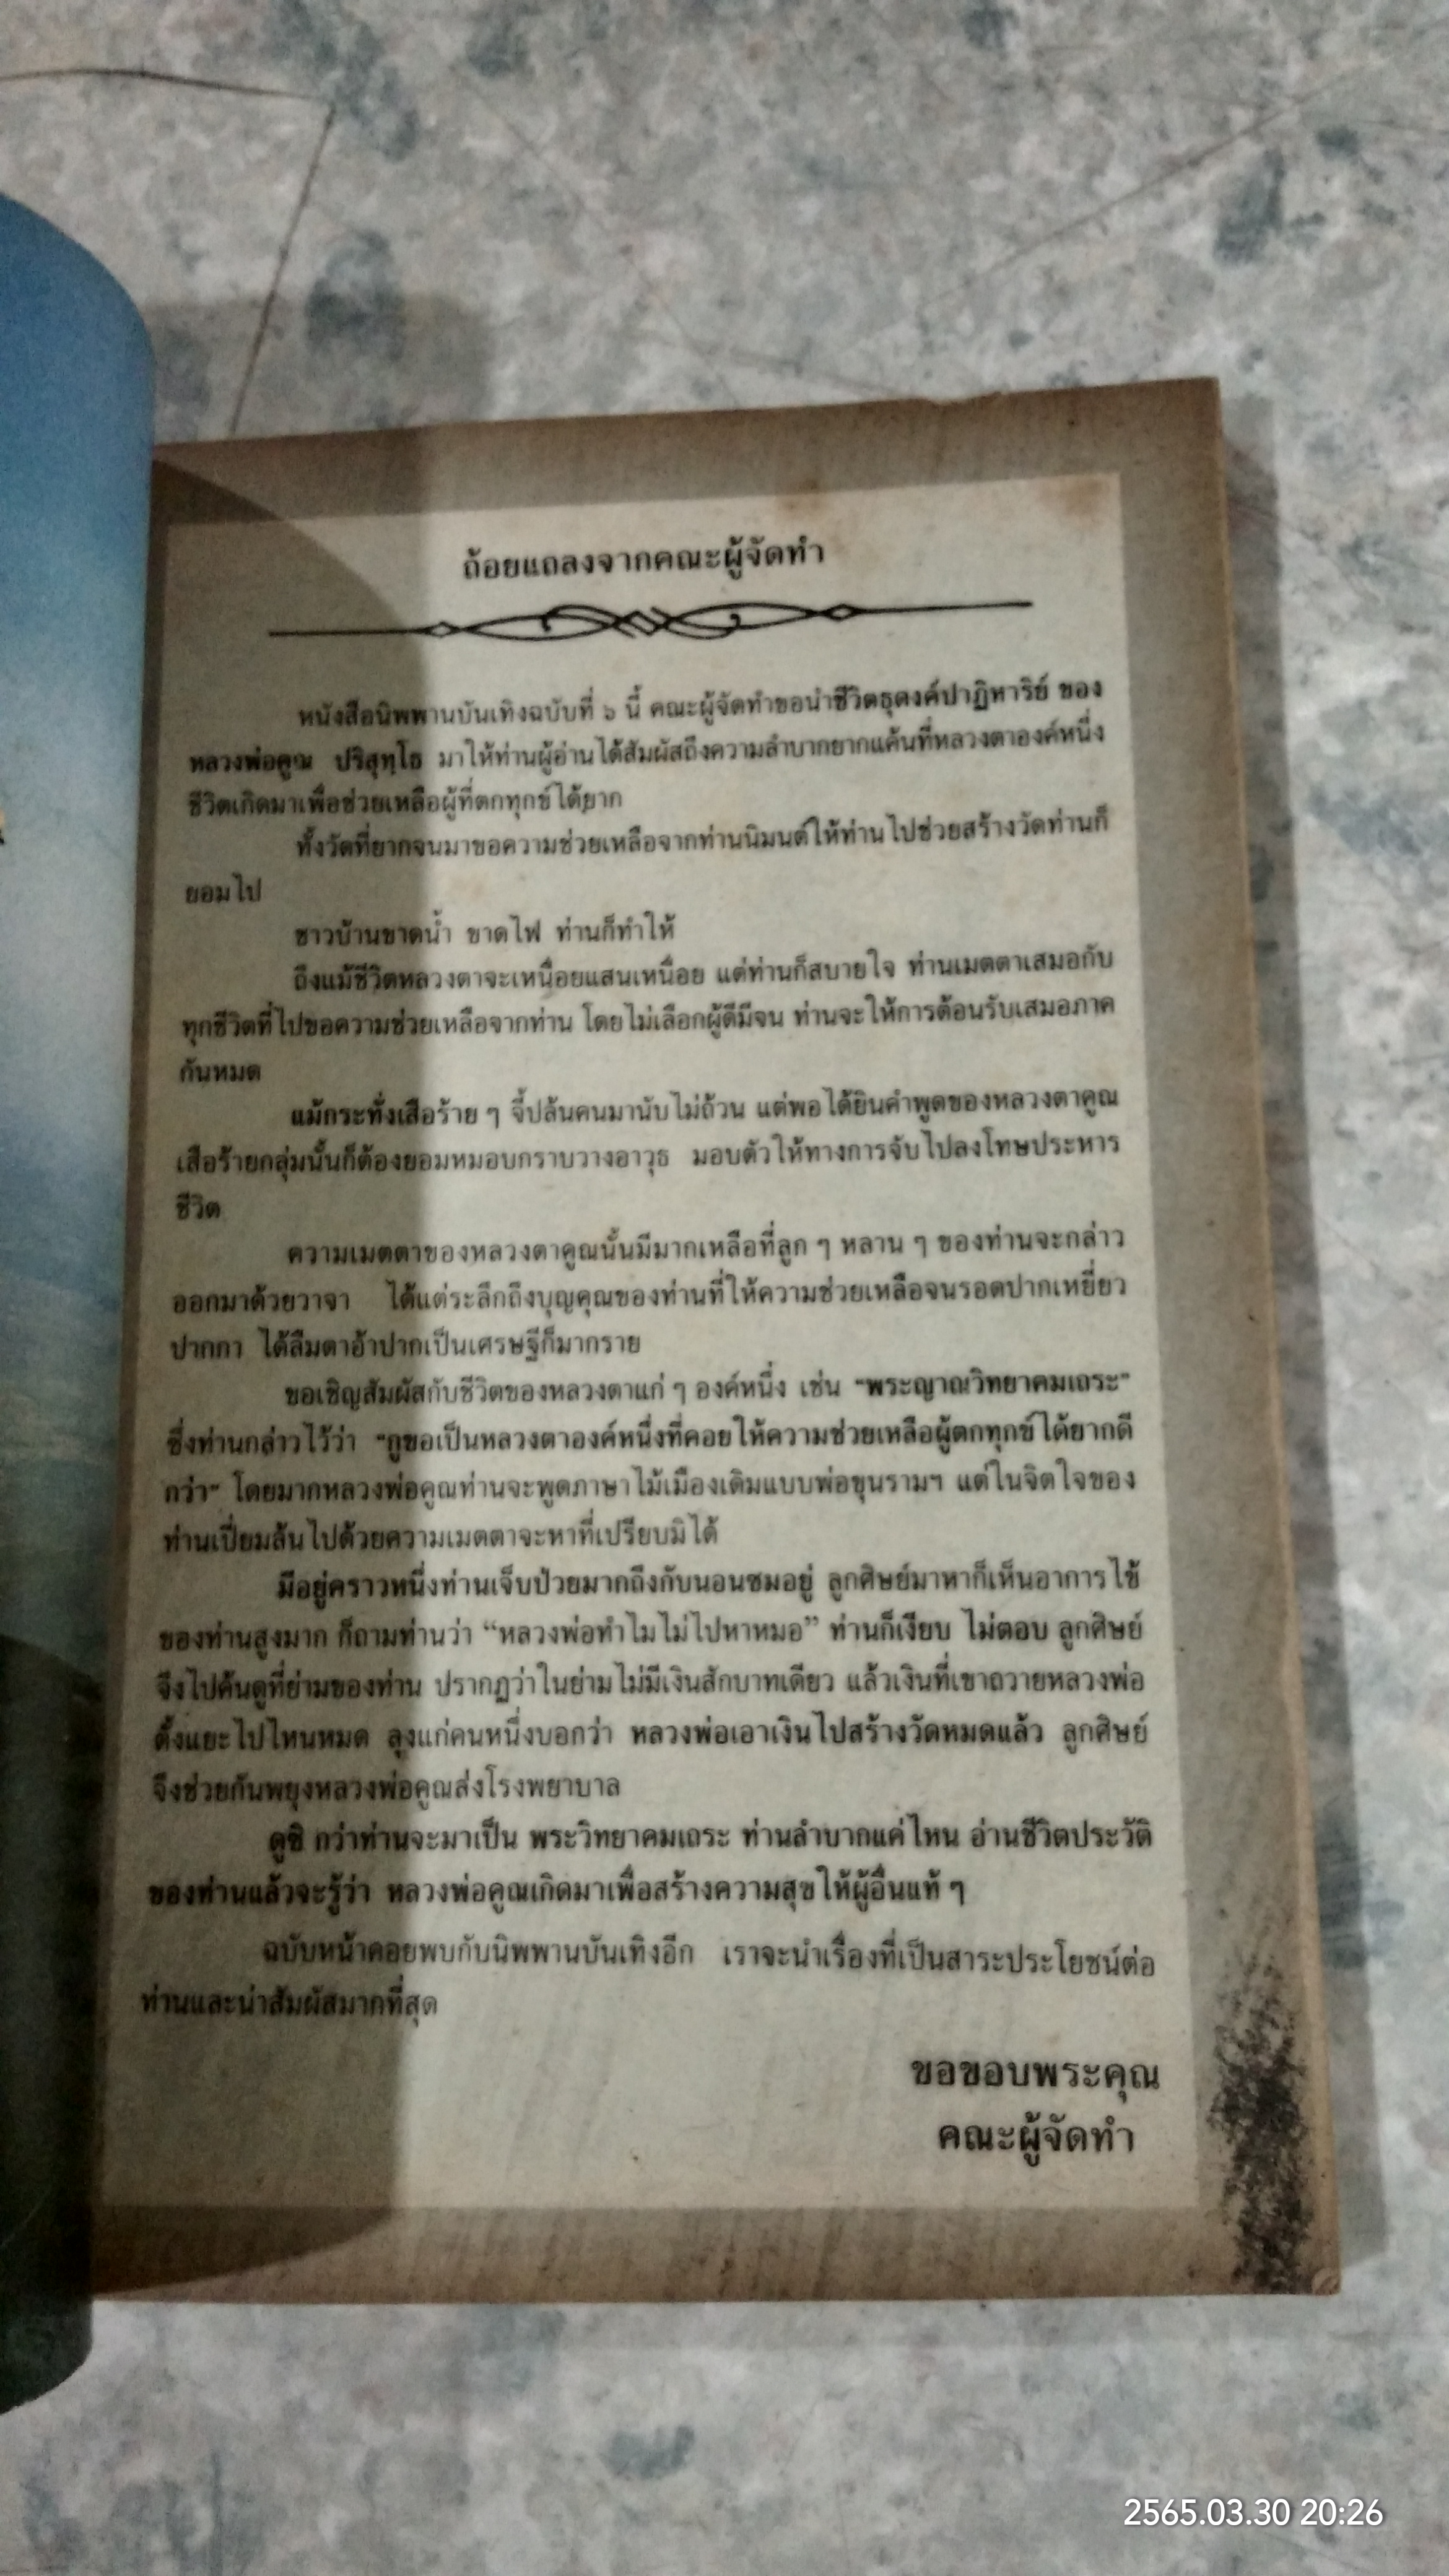 ถ้อยแถลงจากคณะผู้จัดทำ
หนังสือนิพพานบันเทิงฉบับที่ ๖ นี้ คณะผู้จัดทำขอนำชีวิตธุดงค์ปาฏิหาริย์ ของ
หลวงพ่อคูณ ปริสุทฺโธ มาให้ท่านผู้อ่านได้สัมผัสถึงความลำบากยากแค้นที่หลวงตาองค์หนึ่ง
ชีวิตเกิดมาเพื่อช่วยเหลือผู้ที่ตกทุกข์ได้ยาก
ทั้งวัดที่ยากจนมาขอความช่วยเหลือจากท่านนิมนต์ให้ท่านไปช่วยสร้างวัดท่านก็
ยอมไป
ชาวบ้านขาดน้ำ ขาดไฟ ท่านก็ทำให้
ถึงแม้ชีวิตหลวงตาจะเหนื่อยแสนเหนื่อย แต่ท่านก็สบายใจ ท่านเมตตาเสมอกับ
ทุกชีวิตที่ไปขอความช่วยเหลือจากท่าน โดยไม่เลือกผู้ดีมีจน ท่านจะให้การต้อนรับเสมอภาค
กันหมด
แม้กระทั่งเสือร้าย ๆ จี้ปล้นคนมานับไม่ถ้วน แต่พอได้ยินคำพูดของหลวงตาคูณ
เสือร้ายกลุ่มนั้นก็ต้องยอมหมอบกราบวางอาวุธ มอบตัวให้ทางการจับไปลงโทษประหาร
ชีวิต
ความเมตตาของหลวงตาคูณนั้นมีมากเหลือที่ลูก ๆ หลาน ๆ ของท่านจะกล่าว
ออกมาด้วยวาจา ได้แต่ระลึกถึงบุญคุณของท่านที่ให้ความช่วยเหลือจนรอดปากเหยี่ยว
ปากกา ได้ลืมตาอ้าปากเป็นเศรษฐีก็มากราย
ขอเชิญสัมผัสกับชีวิตของหลวงตาแก่ ๆ องค์หนึ่ง เช่น "พระญาณวิทยาคมเถระ"
ซึ่งท่านกล่าวไว้ว่า "กูขอเป็นหลวงตาองค์หนึ่งที่คอยให้ความช่วยเหลือผู้ตกทุกข์ได้ยากดี
กว่า" โดยมากหลวงพ่อคูณท่านจะพูดภาษาไม้เมืองเดิมแบบพ่อขุนรามฯ แต่ในจิตใจของ
ท่านเปี่ยมล้นไปด้วยความเมตตาจะหาที่เปรียบมิได้
มีอยู่คราวหนึ่งท่านเจ็บป่วยมากถึงกับนอนซมอยู่ ลูกศิษย์มาหาก็เห็นอาการไข้
ของท่านสูงมาก ก็ถามท่านว่า “หลวงพ่อทำไมไม่ไปหาหมอ” ท่านก็เงียบ ไม่ตอบ ลูกศิษย์
จึงไปค้นดูที่ย่ามของท่าน ปรากฏว่าในย่ามไม่มีเงินสักบาทเดียว แล้วเงินที่เขาถวายหลวงพ่อ
ตั้งแยะไปไหนหมด ลุงแก่คนหนึ่งบอกว่า หลวงพ่อเอาเงินไปสร้างวัดหมดแล้ว ลูกศิษย์
จึงช่วยกันพยุงหลวงพ่อคูณส่งโรงพยาบาล
ดูซิ กว่าท่านจะมาเป็น พระวิทยาคมเถระ ท่านลำบากแค่ไหน อ่านชีวิตประวัติ
ของท่านแล้วจะรู้ว่า หลวงพ่อคูณเกิดมาเพื่อสร้างความสุขให้ผู้อื่นแท้ ๆ
ฉบับหน้าคอยพบกับนิพพานบันเทิงอีก เราจะนำเรื่องที่เป็นสาระประโยชน์ต่อ
ท่านและน่าสัมผัสมากที่สุด
ขอขอบพระคุณ
คณะผู้จัดทำ
2565.03.30 20:26